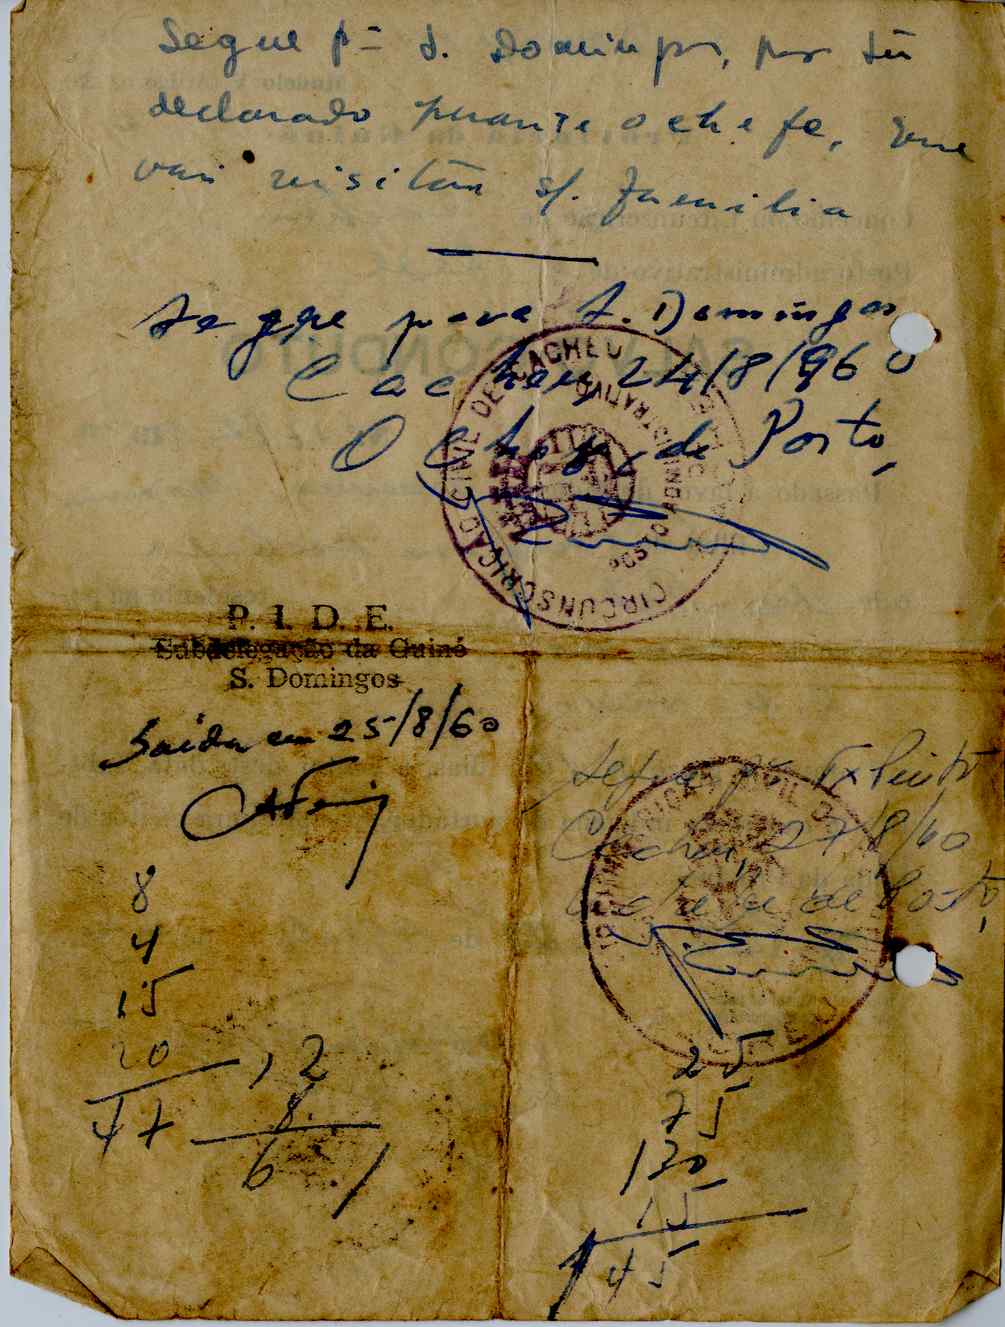 Segue pª S. Domingos, por ter
declarado perante o chefe, que
vai visitar s/. familia
Segue para S. Domingos
Cacheu 24/8/960
O Chefe de Posto,
CIRCUNSCRIÇÃO CIVIL DE CACHEU
POSTO ADMINISTRATIVO
P. I. D. E.
Subdelegação da Guiné
S. Domingos
Saída em 25/8/60
Segue pª
Cacheu, 27/8/60
O chefe de Posto,
8
4
15
20
47
12
8
6
25
75
130
15
45